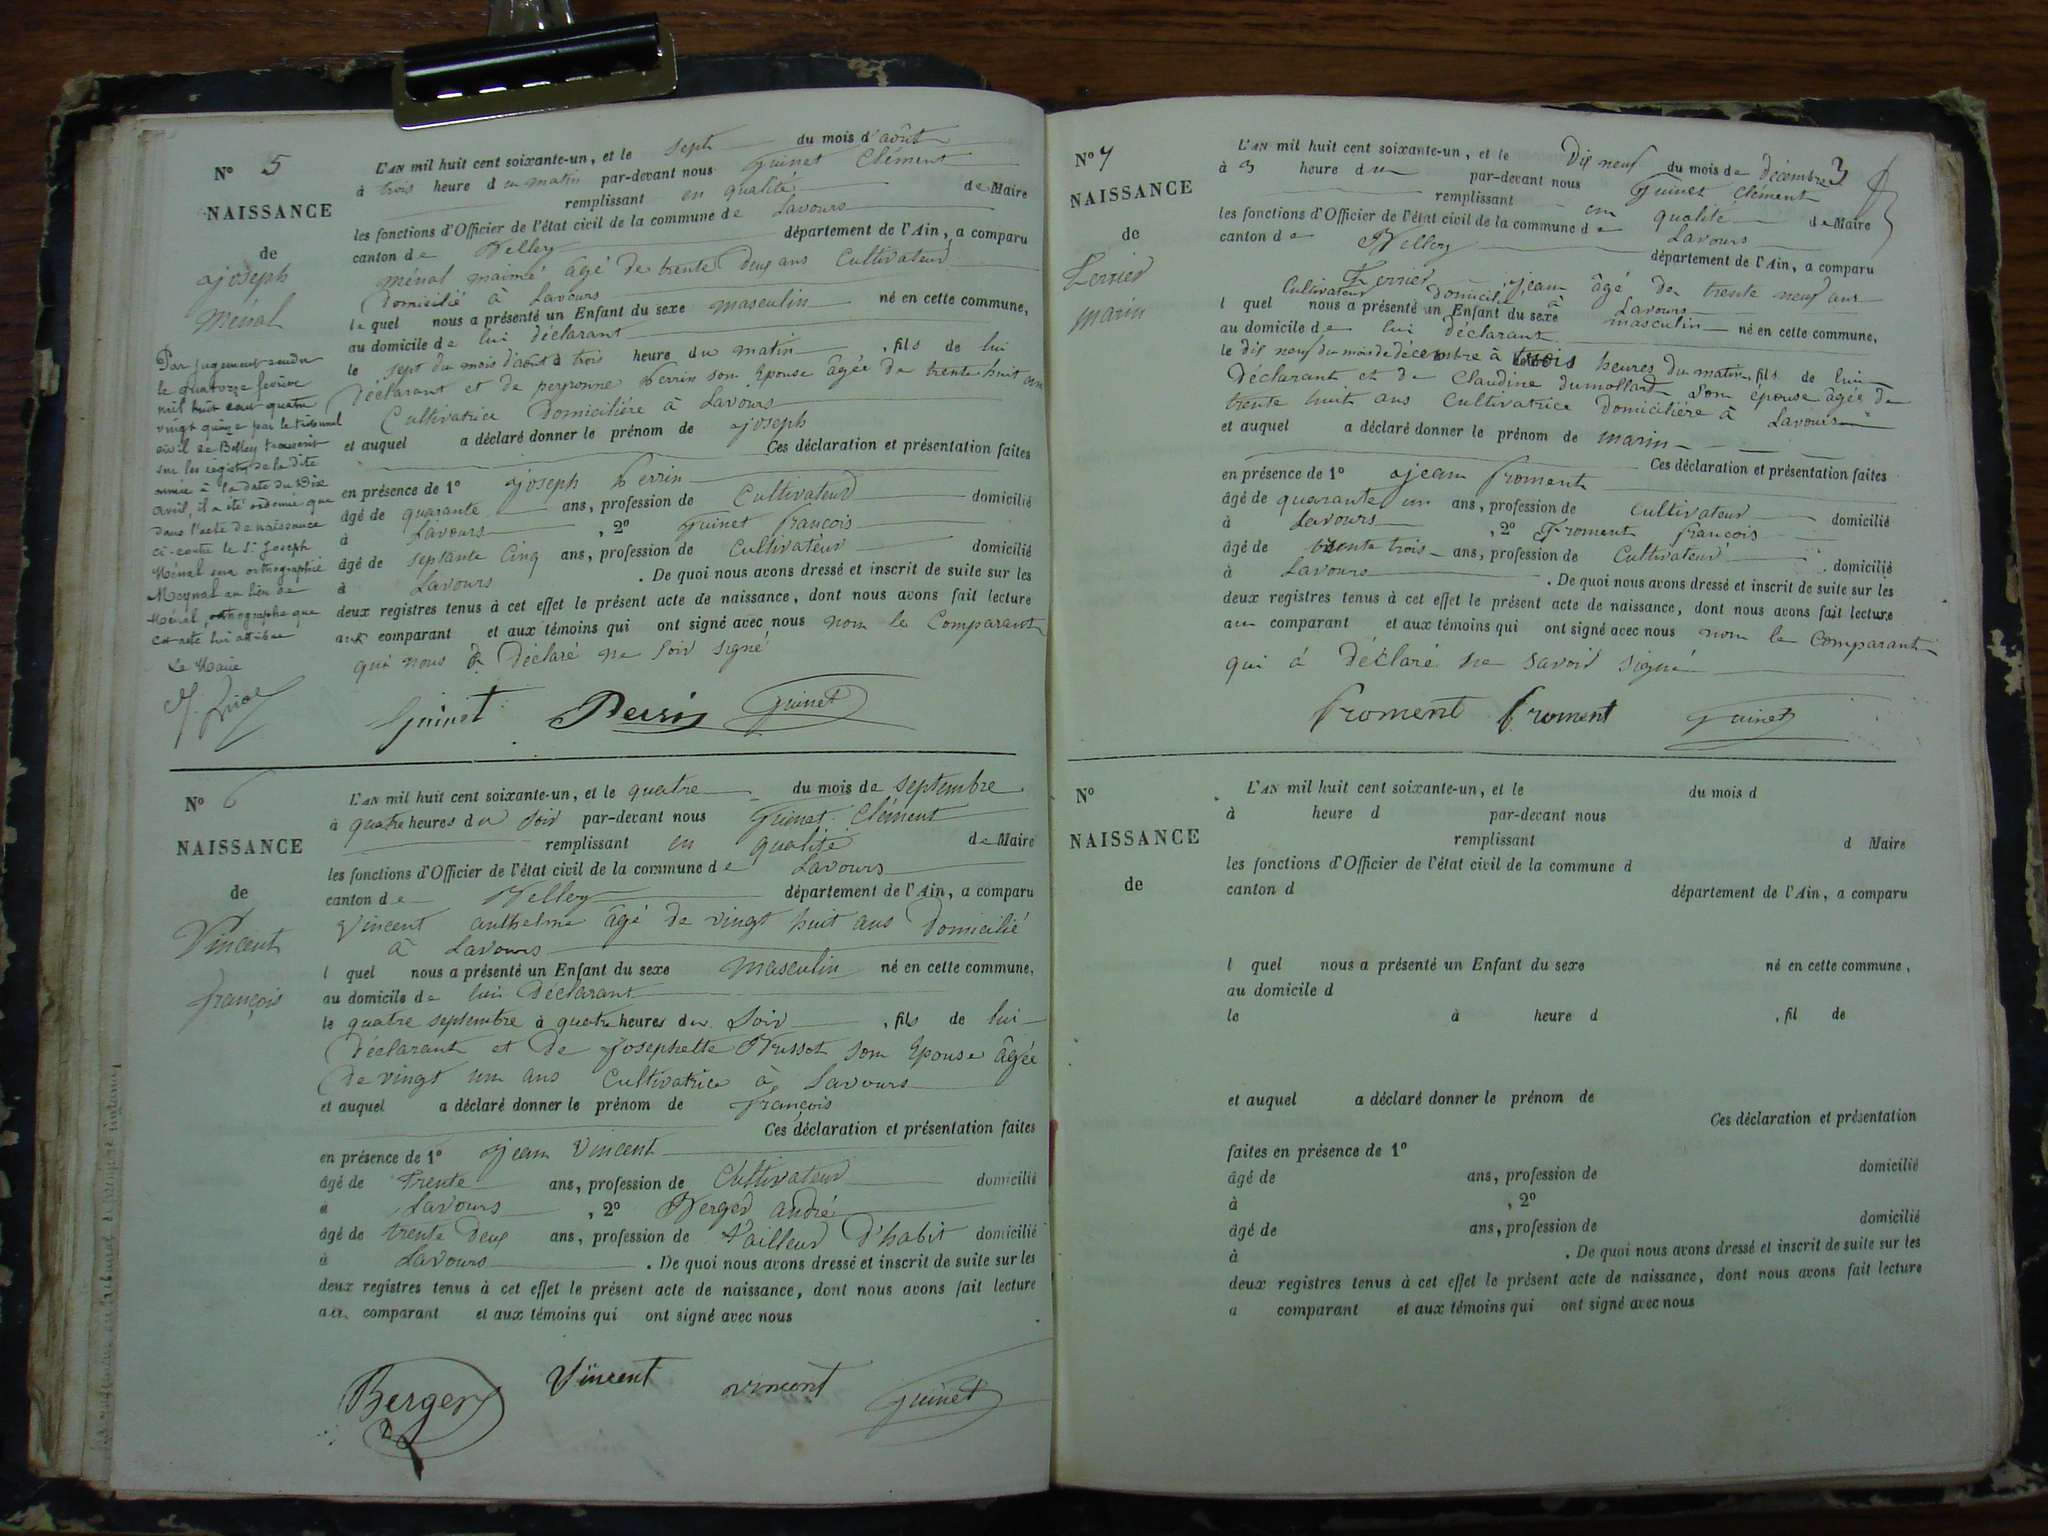 N° 5
NAISSANCE
de
joseph
Ménal
Par jugement rendu
le quatorze février
mil huit cent quatre
vingt quinze par le tribunal
civil de Belley transcrit
sur les registres de la dite
année à la date du dix
avril, il a été ordonné que
dans l'acte de naissance
ci-contre le Sr Joseph
Ménal sera orthographié
Meynal au lieu de
Ménal, orthographe que
cet acte lui attribue
Le Maire
L'AN mil huit cent soixante-un, et le sept du mois d'août
à trois heure du matin par-devant nous Guinet Clément
remplissant en qualité de Maire
les fonctions d'Officier de l'état civil de la commune de Lavours
canton de Belley département de l'Ain, a comparu
Ménal maimé âgé de trente deux ans Cultivateur
Domicilié à Lavours
lequel nous a présenté un Enfant du sexe masculin né en cette commune,
au domicile de lui déclarant
le sept du mois d'août à trois heure du matin, fils de lui
Déclarant et de peyronne Perrin son Epouse âgée de trente huit ans
Cultivatrice Domicilière à Lavours
et auquel a déclaré donner le prénom de joseph
Ces déclaration et présentation faites
en présence de 1° joseph Perrin
âgé de quarante ans, profession de Cultivateur domicilié
à Lavours, 2° Guinet françois
âgé de septante Cinq ans, profession de Cultivateur domicilié
à Lavours. De quoi nous avons dressé et inscrit de suite sur les
deux registres tenus à cet effet le présent acte de naissance, dont nous avons fait lecture
aux comparant et aux témoins qui ont signé avec nous non le Comparant
qui nous a Déclaré ne Soir signé
Guinet Perrin Guinet
N° 6
NAISSANCE
de
Vincent
françois
L'AN mil huit cent soixante-un, et le quatre du mois de septembre
à quatre heures du Soir par-devant nous Guinet Clément
remplissant en qualité de Maire
les fonctions d'Officier de l'état civil de la commune de Lavours
canton de Belley département de l'Ain, a comparu
Vincent anthelme âgé de vingt huit ans Domicilié
à Lavours
l quel nous a présenté un Enfant du sexe masculin né en cette commune,
au domicile de lui Déclarant
le quatre septembre à quatre heures du Soir, fils de lui
Déclarant et de Josephette Brissot son Epouse âgée
de vingt un ans Cultivatrice à Lavours
et auquel a déclaré donner le prénom de françois
Ces déclaration et présentation faites
en présence de 1° jean Vincent
âgé de trente ans, profession de Cultivateur domicilié
à Lavours, 2° Berger andré
âgé de trente Deux ans, profession de tailleur D'habit domicilié
à Lavours. De quoi nous avons dressé et inscrit de suite sur les
deux registres tenus à cet effet le présent acte de naissance, dont nous avons fait lecture
au comparant et aux témoins qui ont signé avec nous
Berger Vincent vincent Guinet
N° 7
NAISSANCE
de
Terrier
marin
3
L'AN mil huit cent soixante-un, et le Dix neuf du mois de décembre
à 3 heure du par-devant nous Guinet Clément
remplissant en qualité de Maire
les fonctions d'Officier de l'état civil de la commune de Lavours
canton de Belley département de l'Ain, a comparu
Terrier jean âgé de trente neuf ans
Cultivateur domicilié à Lavours
l quel nous a présenté un Enfant du sexe masculin né en cette commune,
au domicile de lui déclarant
le dix neuf du mois de décembre à trois heures du matin, fils de lui
Déclarant et de Claudine dumollard Son épouse âgée de
trente huit ans Cultivatrice domicilière à Lavours
et auquel a déclaré donner le prénom de marin
Ces déclaration et présentation faites
en présence de 1° jean froment
âgé de quarante un ans, profession de Cultivateur domicilié
à Lavours, 2° Froment françois
âgé de trente trois ans, profession de Cultivateur domicilié
à Lavours. De quoi nous avons dressé et inscrit de suite sur les
deux registres tenus à cet effet le présent acte de naissance, dont nous avons fait lecture
au comparant et aux témoins qui ont signé avec nous non le Comparant
qui à Déclaré ne savoir signé
froment froment Guinet
N°
NAISSANCE
de
L'AN mil huit cent soixante-un, et le du mois d
à heure d par-devant nous
remplissant d Maire
les fonctions d'Officier de l'état civil de la commune d
canton d département de l'Ain, a comparu
l quel nous a présenté un Enfant du sexe né en cette commune,
au domicile d
le à heure d, fil de
et auquel a déclaré donner le prénom de
Ces déclaration et présentation
faites en présence de 1°
âgé de ans, profession de domicilié
à, 2°
âgé de ans, profession de domicilié
à. De quoi nous avons dressé et inscrit de suite sur les
deux registres tenus à cet effet le présent acte de naissance, dont nous avons fait lecture
a comparant et aux témoins qui ont signé avec nous